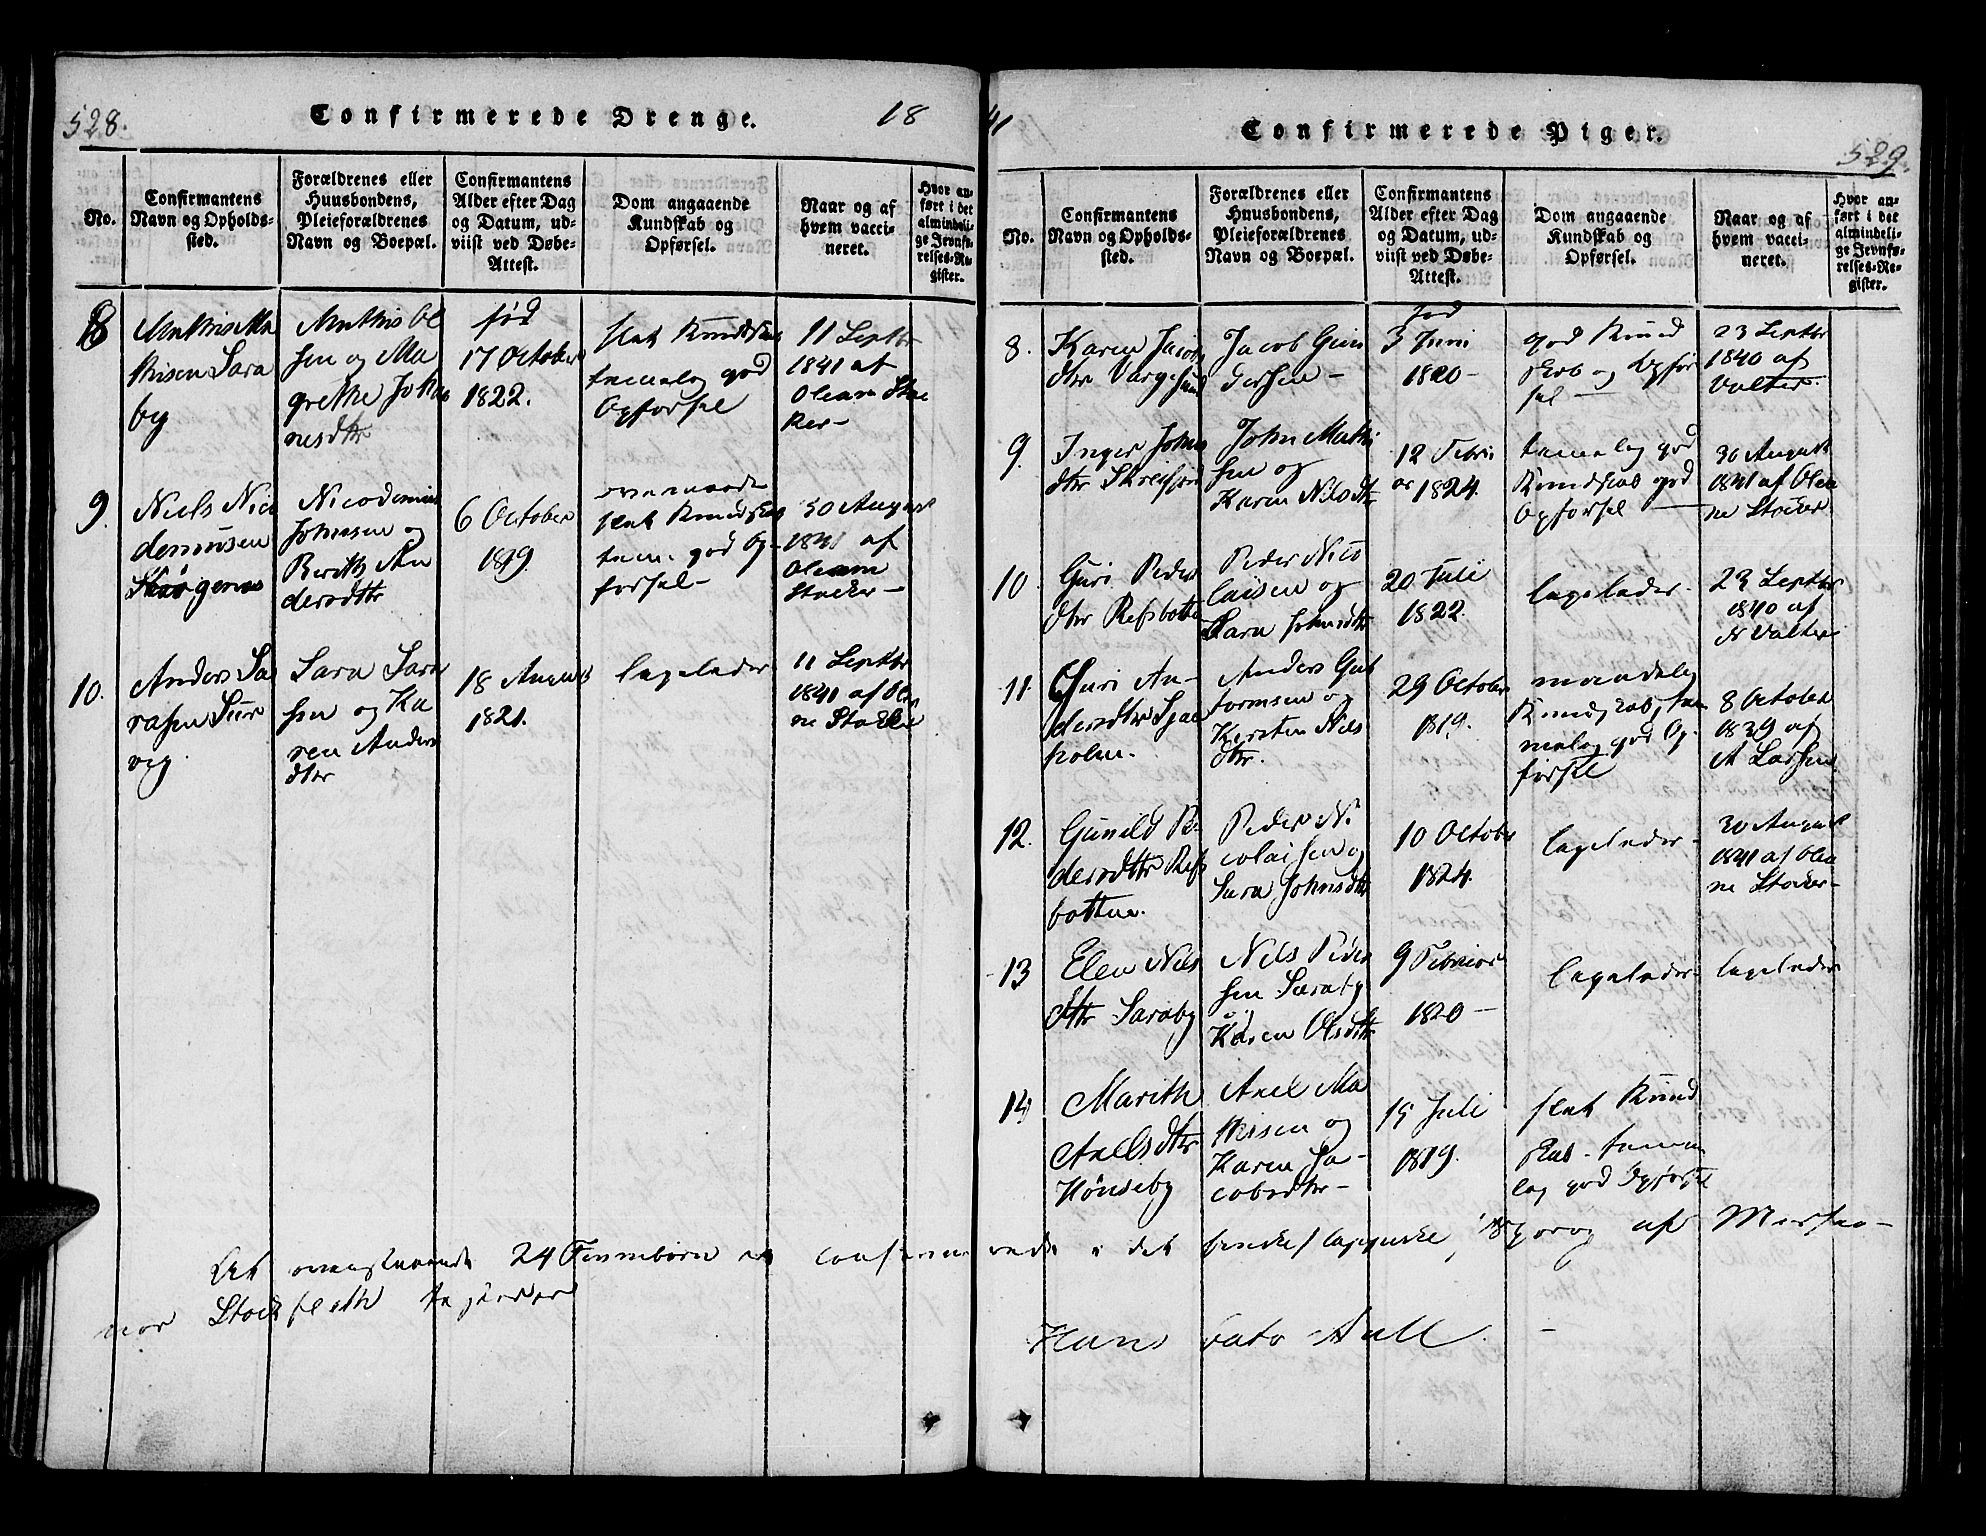 528.
Confirmerede Drenge.
18
No.
Confirmantens
Navn og Opholds-
sted.
Forældrenes eller
Huusbondens,
Pleieforældrenes
Navn og Boepæl.
Confirmantens
Alder efter Dag
og Datum, ud-
viist ved Døbe-
Attest.
Dom angaaende
Kundskab og
Opførsel.
Naar og af
hvem vacci-
neret.
Hvor an-
ført i det
almindeli-
ge Jevnfø-
relses-Re-
gister.
8
Mathis Ma
thisen Sara
by
Mathis Ol
sen og Ma
grethe Johan
nesdtr
fød
17 October
1822.
slet Kundskab
temelig god
Opførsel
11 Septbr
1841 af
Oleane Stoc
ker-
9.
Niels Nico
demusen
Nicodemus
Johnsen og
Berith An
dersdtr
6 October
1819.
overmaade
slet Kundskab
tem. god Op-
førsel-
30 August
1841 af
Stocker-
10.
Anders Sa
rasen Sur
vig
Sara Sara
sen og Ka
ren Anders
dtr
18 August
1821.
ligeledes
11 Septbr
1841 af Ole
ne Stocker
41
Confirmerede Piger.
529.
No.
Confirmantens
Navn og Opholds-
sted.
Forældrenes eller
Huusbondens,
Pleieforældrenes
Navn og Boepæl.
Confirmantens
Alder efter Dag
og Datum, ud-
viist ved Døbe-
Attest.
Dom angaaende
Kundskab og
Opførsel.
Naar og af
hvem vacci-
neret.
Hvor an-
ført i det
almindeli-
ge Jevnfø-
relses-Re-
gister.
8.
Karen Jacobs
dtr Vargsund
Jacob Gun
dersen-
fød
3 Juni
1820-
god Kund
skab og Opfør
sel-
23 Septbr
1840 af
Valter.
9.
Inger Johns
dtr Skreifjord
John Mathi
sen og
Karen Nilsdtr
12 Febru
ar 1824.
temelig god
Kundskab god
Opførsel
30 August
1841 af Olea
ne Stocker
10.
Guri Peders
dtr Refsbotten
Peder Nico
laisen og
Sara Johnsdtr
20 Juli
1822.
ligeledes-
23 Septbr
1840 af
N Valter
11.
Guri An-
dersdtr Sjaa
holm.
Anders Gut
tormsen og
Kirsten Nils
dtr.
29 October
1819.
maadelig
Kundskab, te
melig god Op-
førsel
8 October
1839 af
A Larsen
12.
Gunild Pe
dersdtr Refs
botten.
Peder Ni
colaisen og
Sara Johnsdtr
10 October
1824.
ligeledes-
30 August
1841 af Olea
ne Stocker-
13
Elen Nils
dtr Saraby
Nils Peder
sen Saraby
Karen Olsdtr
9 Februar
1820-
ligeledes-
ligeledes
14
Marith
Axelsdtr
Kønseby
Axel Ma
thisen og
Karen Ja-
cobsdtr-
15 Juli
1819.
slet Kund
skab- teme
lig god Opførsel
At ovenstaaende 24 Finnebørn ere confirmerede i det finske/lappiske Sprog af Missio-
nær Stockfleth
Hans Cato Aall.